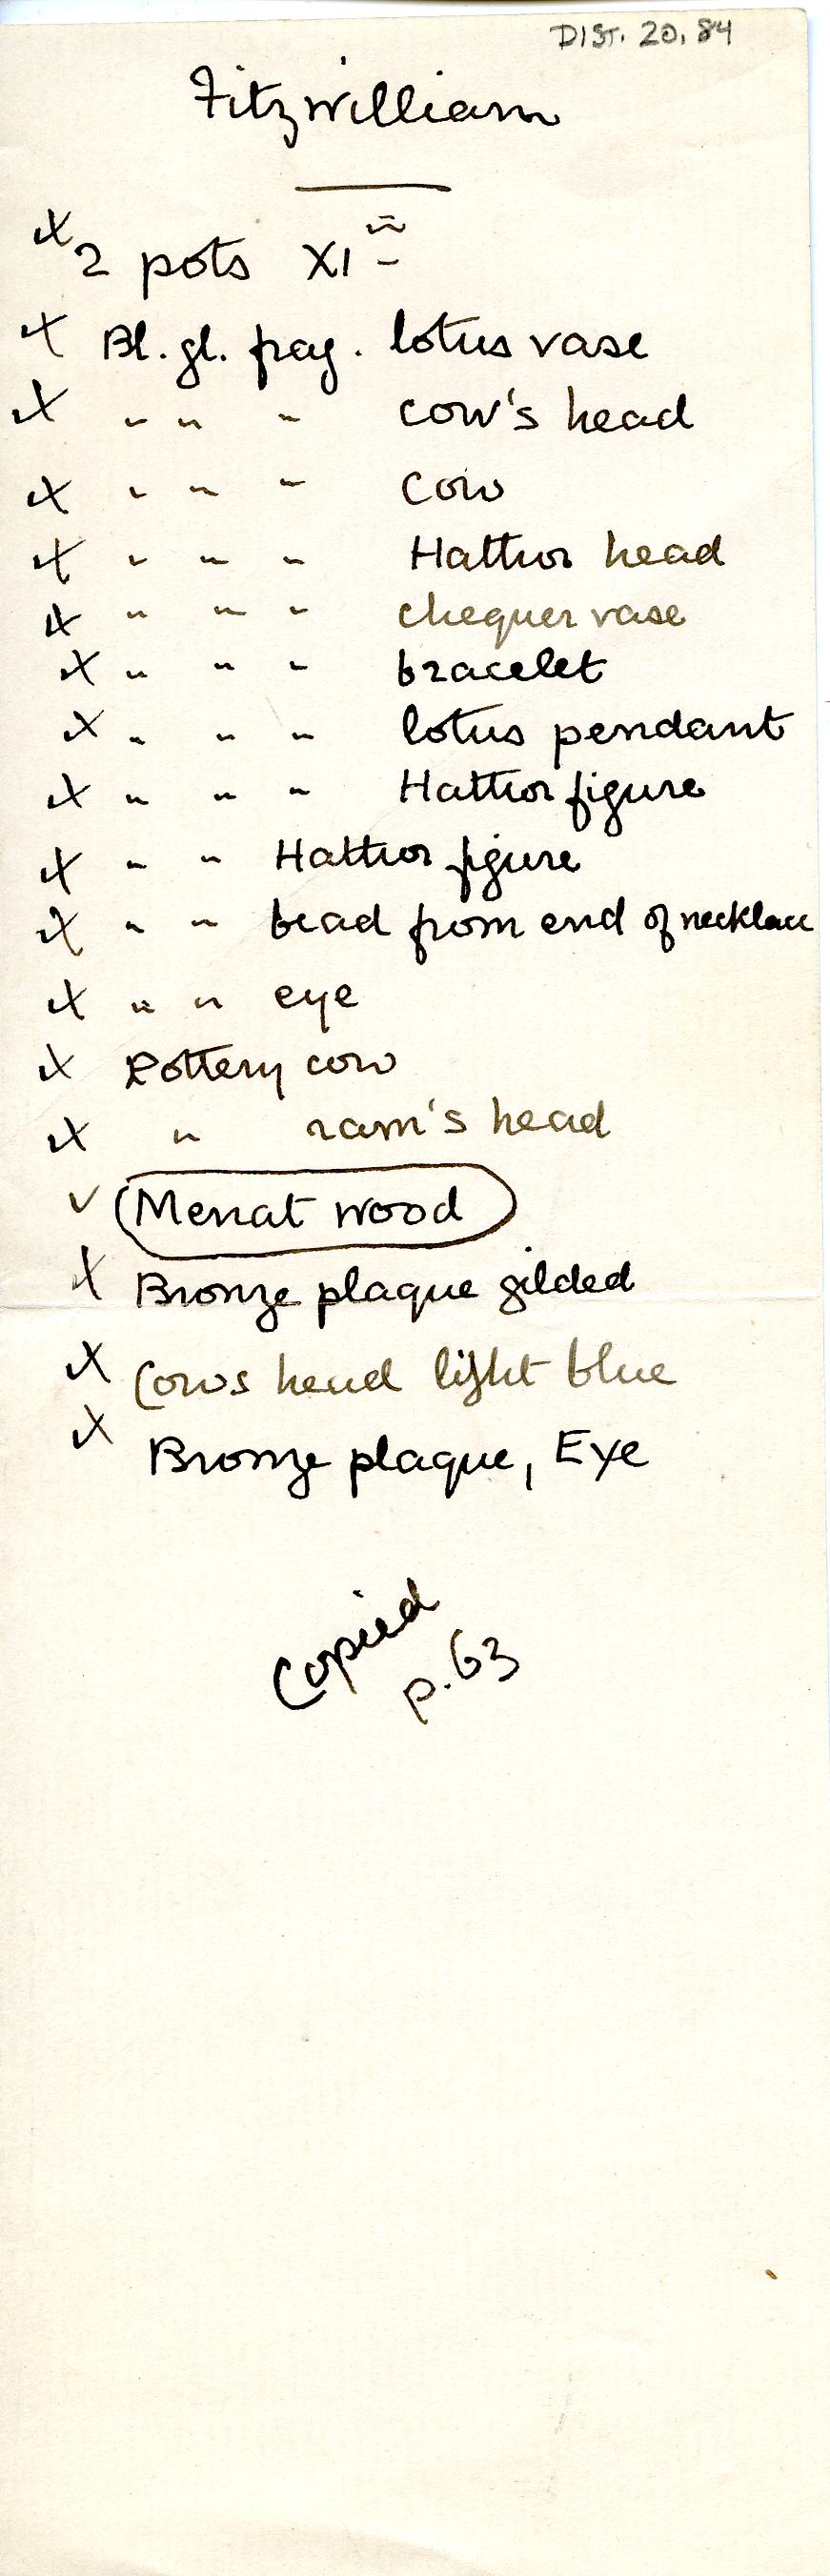 DIST. 20. 84
Fitzwilliam
2 pots XI
Bl. gl. frag. lotus vase
" " " cow's head
" " " cow
" " " Hathor head
" " " chequer vase
" " " bracelet
" " " lotus pendant
" " " Hathor figure
" " Hathor figure
" " bead from end of necklace
" " eye
Pottery cow
" ram's head
Menat wood
Bronze plaque gilded
Cows head light blue
Bronze plaque, Eye
Copied
p. 63